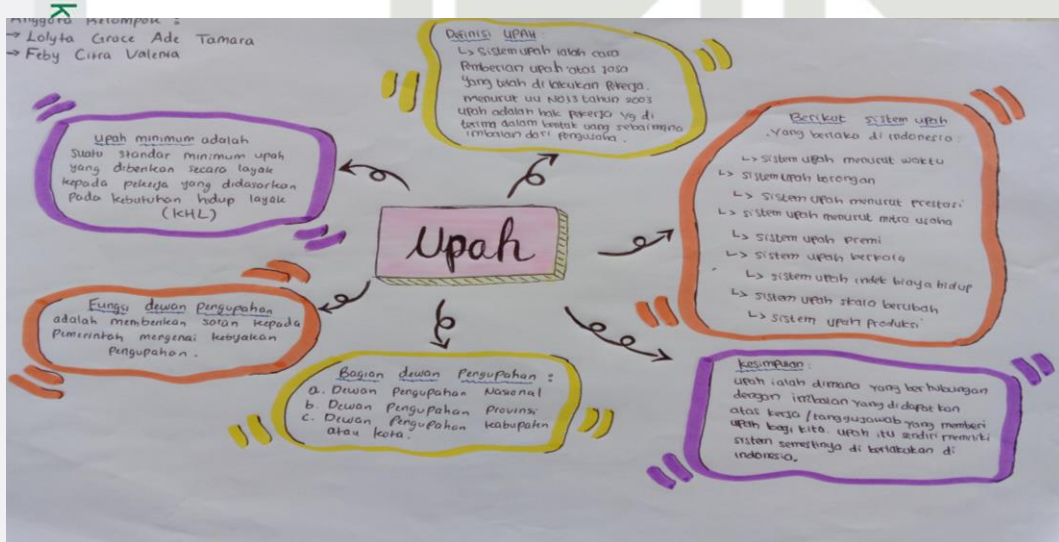 Anggota Kelompok :
→ Lolyta Grace Ade Tamara
→ Feby Citra Valenia
Definisi UPAH :
↳ Sistem upah ialah cara
Pemberian upah atas jasa
yang telah di lakukan Pekerja.
menurut uu No13 tahun 2003
upah adalah hak pekerja yg di
terima dalam bentuk uang sebaimana
imbalan dari pengusaha.
upah minimum adalah
suatu standar minimum upah
yang diberikan secara layak
kepada pekerja yang didasarkan
pada kebutuhan hidup layak
(KHL)
Berikut sistem upah
yang berlaku di indonesia :
↳ sistem upah menurut waktu
↳ sistem upah borongan
↳ sistem upah menurut prestasi
↳ sistem upah menurut mitra usaha
↳ sistem upah premi
↳ sistem upah berkala
↳ sistem upah indek biaya hidup
↳ sistem upah skala berubah
↳ sistem upah produksi
Upah
Fungsi dewan pengupahan
adalah memberikan saran kepada
Pemerintah mengenai kebijakan
Pengupahan.
Bagian dewan Pengupahan :
a. Dewan Pengupahan Nasional
b. Dewan Pengupahan Provinsi
c. Dewan Pengupahan kabupaten
atau kota.
kesimpulan :
upah ialah dimana yang berhubungan
dengan imbalan yang didapatkan
atas kerja / tanggujawab yang memberi
upah bagi kita. upah itu sendiri memiliki
sistem semestinya di berlakukan di
indonesia.